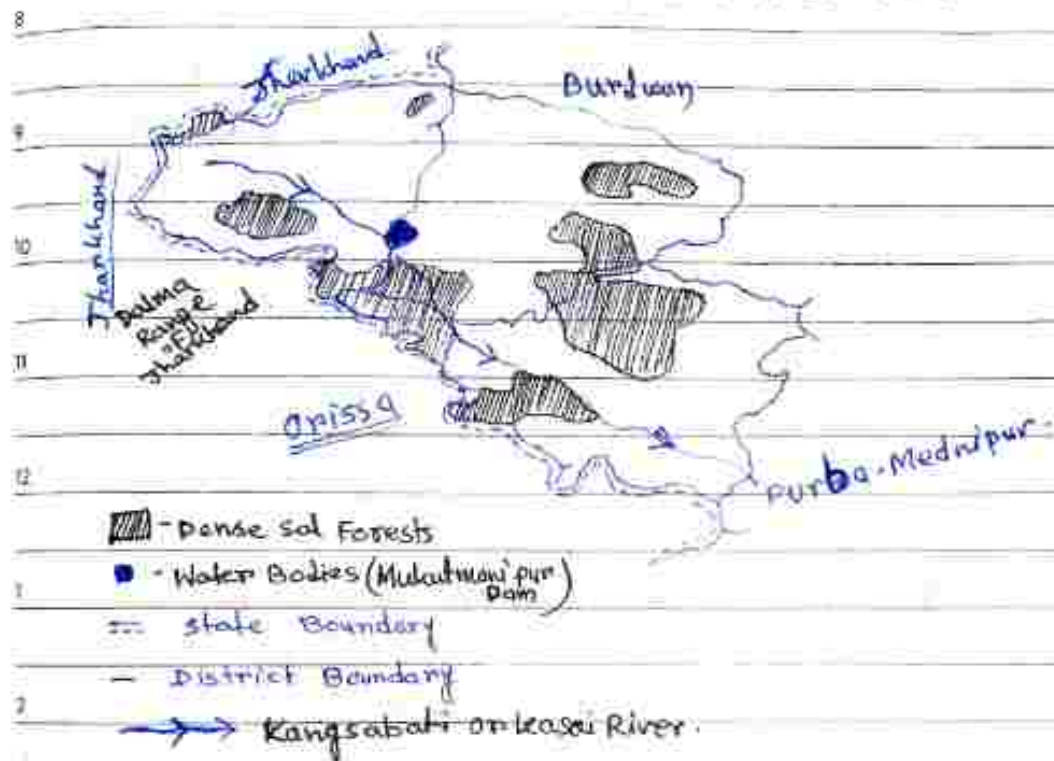 8
Jharkhand
Burdwan
9
Jharkhand
10
Dalma
Range
of
Jharkhand
11
Orissa
12
Purba-Mednipur
- Dense sal Forests
- Water Bodies (Mukutmonipur
Dam)
1
State Boundary
- District Boundary
2
Kangsabati or Kasai River.